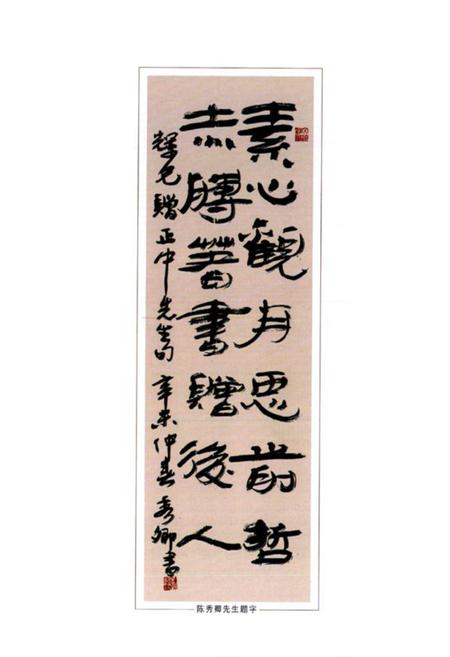 素心觀月思前哲
赤膊著書贈後人
贈正中先生句 辛未仲春 秀卿書
陈秀卿先生题字